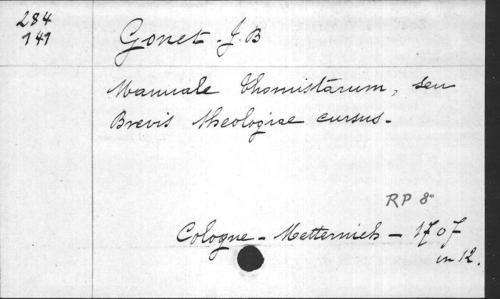 284
141
Gonet - J. B
Manuale Thomistarum, seu
Brevis theologiae cursus -
RP 8°
Cologne - Metternich - 1707
in 12.